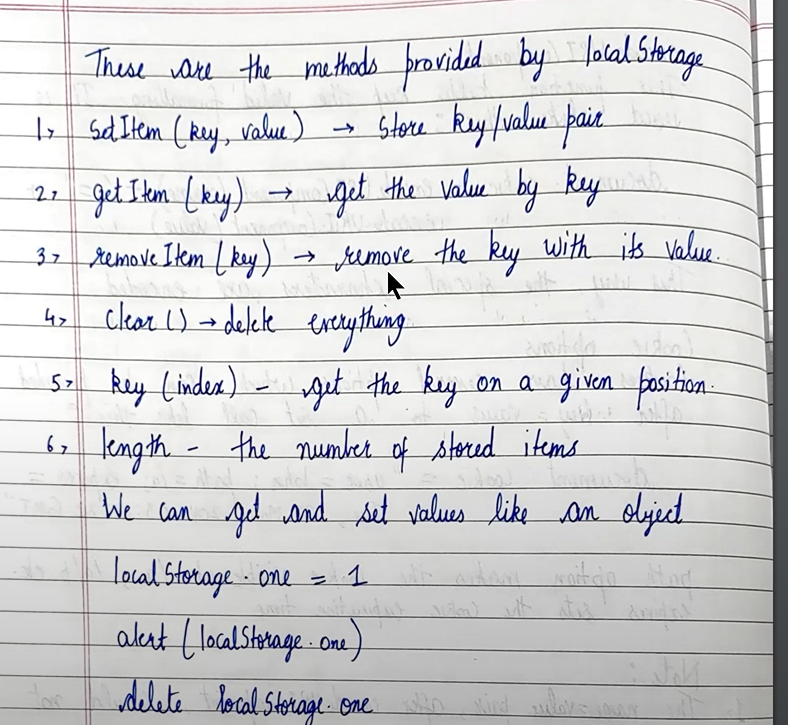 These are the methods provided by localStorage
1> setItem (key, value) → store key/value pair
2> getItem (key) → get the value by key
3> removeItem (key) → remove the key with its value.
4> clear () → delete everything
5> key (index) - get the key on a given position.
6> length - the number of stored items
We can get and set values like an object
localStorage.one = 1
alert (localStorage.one)
delete localStorage.one